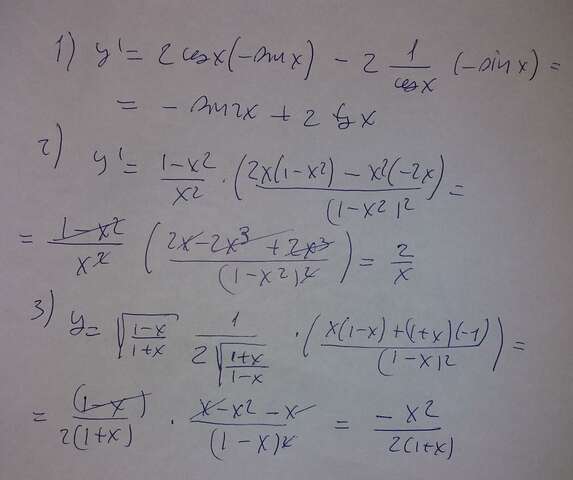 1) y' = 2 cosx(-sinx) - 2 1/cosx (-sinx) =
= - sin2x + 2 tgx
2) y' = (1-x²)/x² · (2x(1-x²) - x²(-2x))/(1-x²)² =
= (1-x²)/x² ((2x-2x³+2x³)/(1-x²)²) = 2/x
3) y = √((1-x)/(1+x)) 1/(2√((1+x)/(1-x))) · (x(1-x)+(1+x)(-1))/(1-x)² =
= (1-x)/(2(1+x)) · (x-x²-x)/(1-x)² = -x²/(2(1+x))